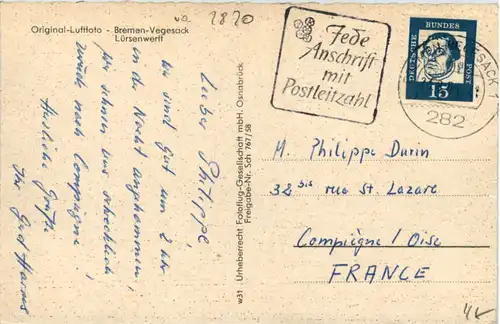 Original-Luftfoto - Bremen-Vegesack
Lürsenwerft
2820
Lieber Philippe!
Wir sind gut um 2 Uhr
in der Nacht angekommen,
wir sehnen uns schrecklich
zurück nach Compiègne!
Herzliche Grüße
Ihr Gerd Harms
w31 Urheberrecht Fotoflug-Gesellschaft mbH, Osnabrück
Freigabe-Nr. Sch 767/58
Jede
Anschrift
mit
Postleitzahl
DEUTSCHE
BUNDES
POST
15
282
M. Philippe Durin
32 bis rue St. Lazare
Compiègne / Oise
FRANCE